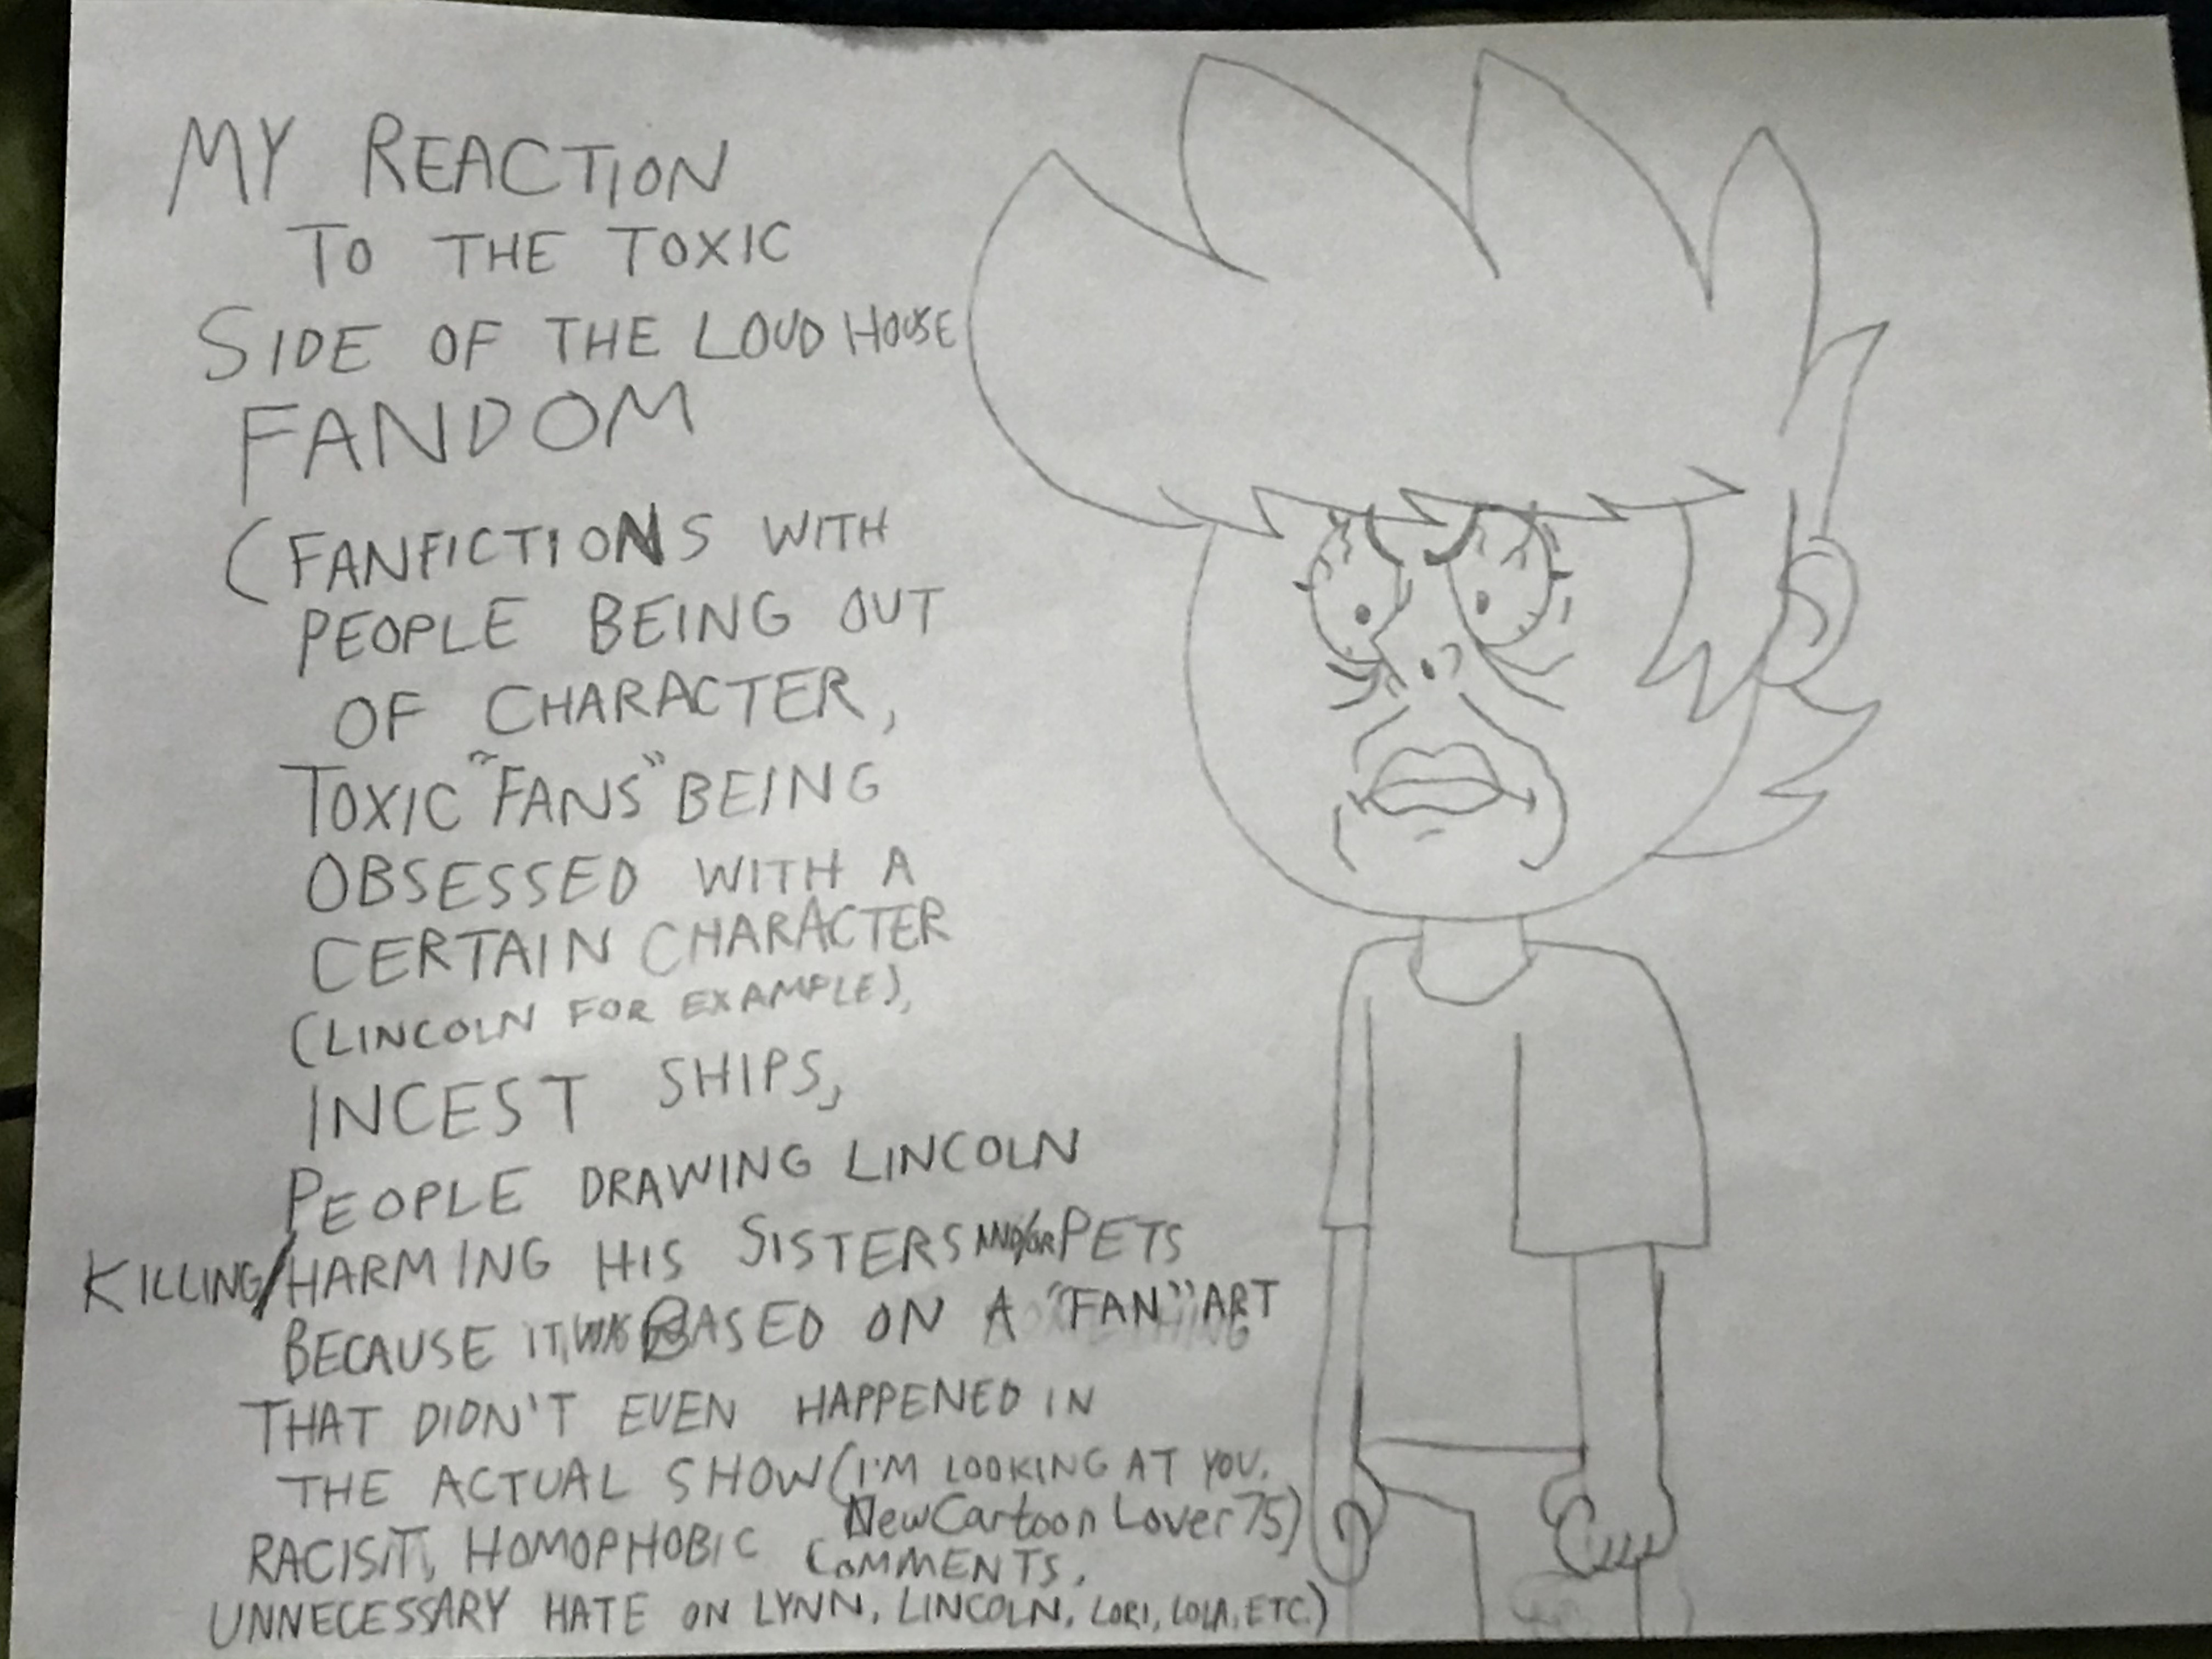 MY REACTION
TO THE TOXIC
SIDE OF THE LOUD HOUSE
FANDOM
(FANFICTIONS WITH
PEOPLE BEING OUT
OF CHARACTER,
TOXIC "FANS" BEING
OBSESSED WITH A
CERTAIN CHARACTER
(LINCOLN FOR EXAMPLE),
INCEST SHIPS,
PEOPLE DRAWING LINCOLN
KILLING/HARMING HIS SISTERS AND/OR PETS
BECAUSE IT WAS BASED ON A "FAN" ART
THAT DIDN'T EVEN HAPPENED IN
THE ACTUAL SHOW (I'M LOOKING AT YOU,
NewCartoonLover75)
RACISIT, HOMOPHOBIC COMMENTS,
UNNECESSARY HATE ON LYNN, LINCOLN, LORI, LOLA, ETC.)